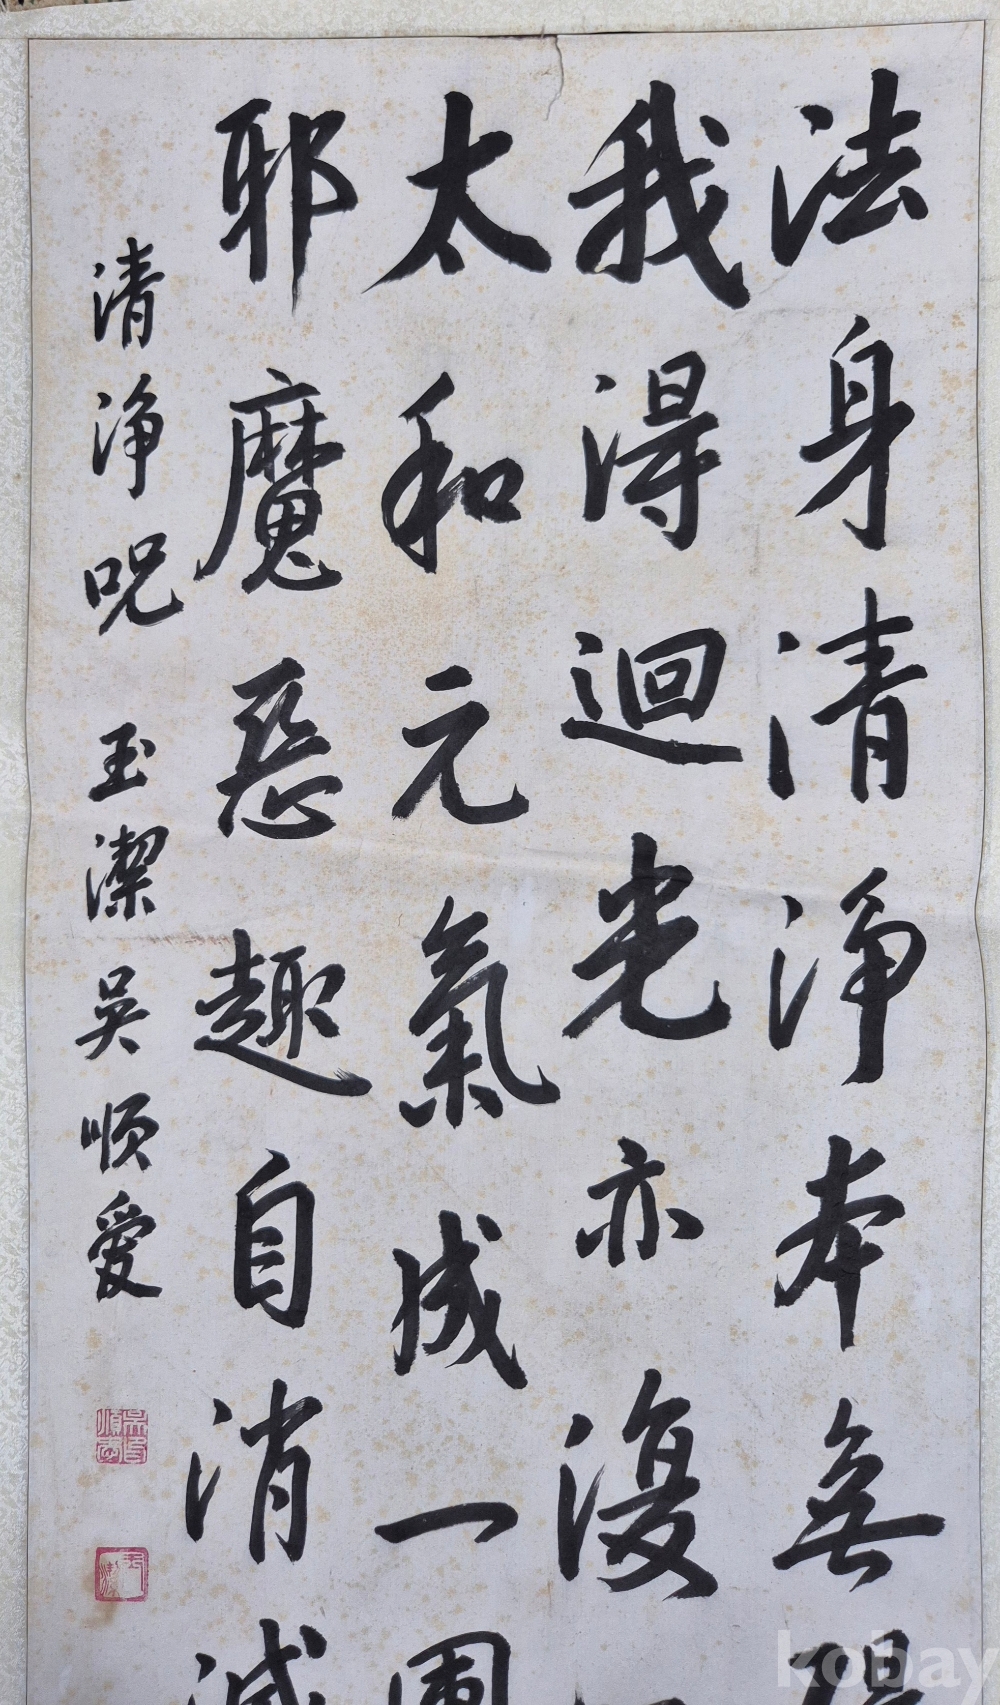 法身清淨本無得
我得迴光亦復
太和元氣成一團
耶魔惡趣自消滅
清淨呪 玉潔吳順愛
kobay